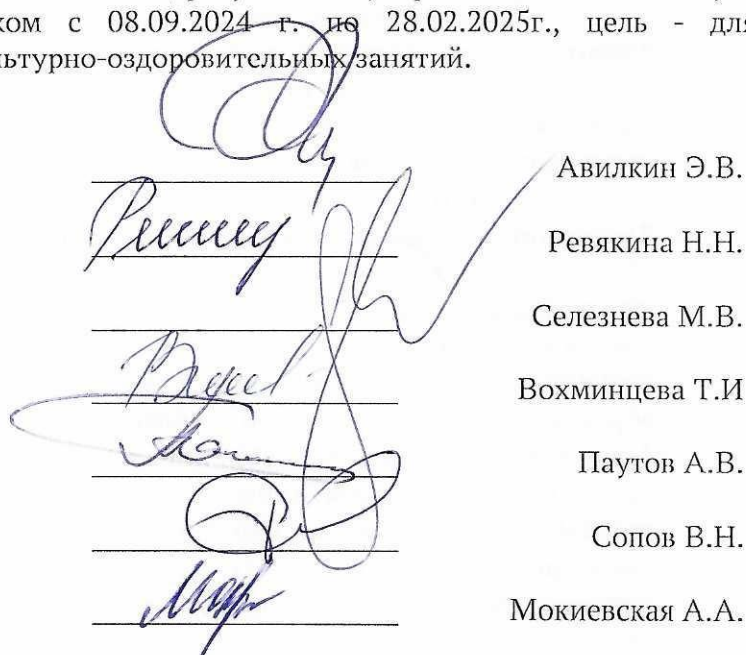 ком с 08.09.2024 г. по 28.02.2025г., цель - для
льтурно-оздоровительных занятий.
Авилкин Э.В.
Ревякина Н.Н.
Селезнева М.В.
Вохминцева Т.И
Паутов А.В.
Сопов В.Н.
Мокиевская А.А.